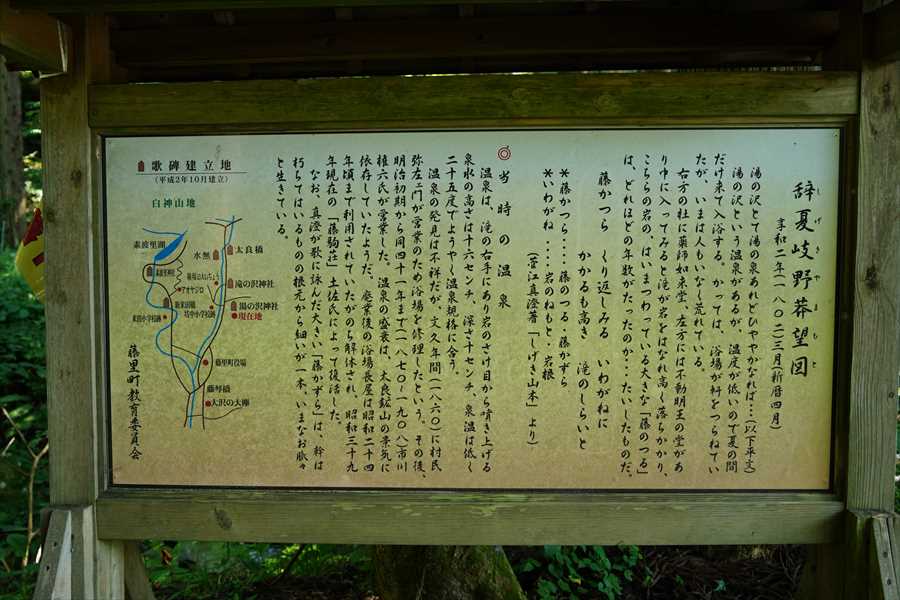 辞夏岐野莽望図
しげきやまもと
享和二年(一八〇二)三月(新暦四月)
湯の沢とて湯の泉あれどひややかなれば…(以下平文)
湯の沢という温泉があるが、温度が低いので夏の間
だけ来て入浴する。かつては、浴場が軒をつらねてい
たが、いまは人もいなし荒れている。
右方の杜に薬師如来堂、左方には不動明王の堂があ
り中に入ってみると滝が岩をはなれ高く落ちかかり、
こちらの岩の、はいまわっている大きな「藤のつる」
は、どれほどの年数がたったのか・・たいしたものだ。
藤かつら くり返しみる いわがねに
かかるも高き 滝のしらいと
*藤かつら・・・・藤のつる・藤かずら
*いわがね・・・・岩のねもと・岩根
(菅江真澄著「しげき山本」より)
◎当時の温泉
温泉は、滝の右手にあり岩のさけ目から噴き上げる
泉水の高さは十六センチ、深さ十センチ、泉温は低く
二十五度でようやく温泉規格に合う。
温泉の発見は不祥だが、文久年間(一八六〇)に村民
弥左ェ門が営業のため浴場を修理したという。その後、
明治初期から同四十一年まで(一八七〇-一九〇八)市川
権六氏が営業した。温泉の盛衰は、太良鉱山の景気に
依存していたようだ。廃業後の浴場長屋は昭和二十四
年頃まで利用されていたがのち解体され、昭和三十九
年現在の「藤駒荘」土佐氏によって復活した。
なお、真澄が歌に詠んだ大きい「藤かずら」は、幹は
朽ちてはいるものの根元から細いが一本、いまなお脈々
と生きている。
歌碑建立地
(平成2年10月建立)
白神山地
素波里湖
水無
太良橋
滝の沢神社
湯の沢神社
現在地
坊中小学校跡
藤里町役場
藤琴橋
大沢の大欅
藤里町教育委員会